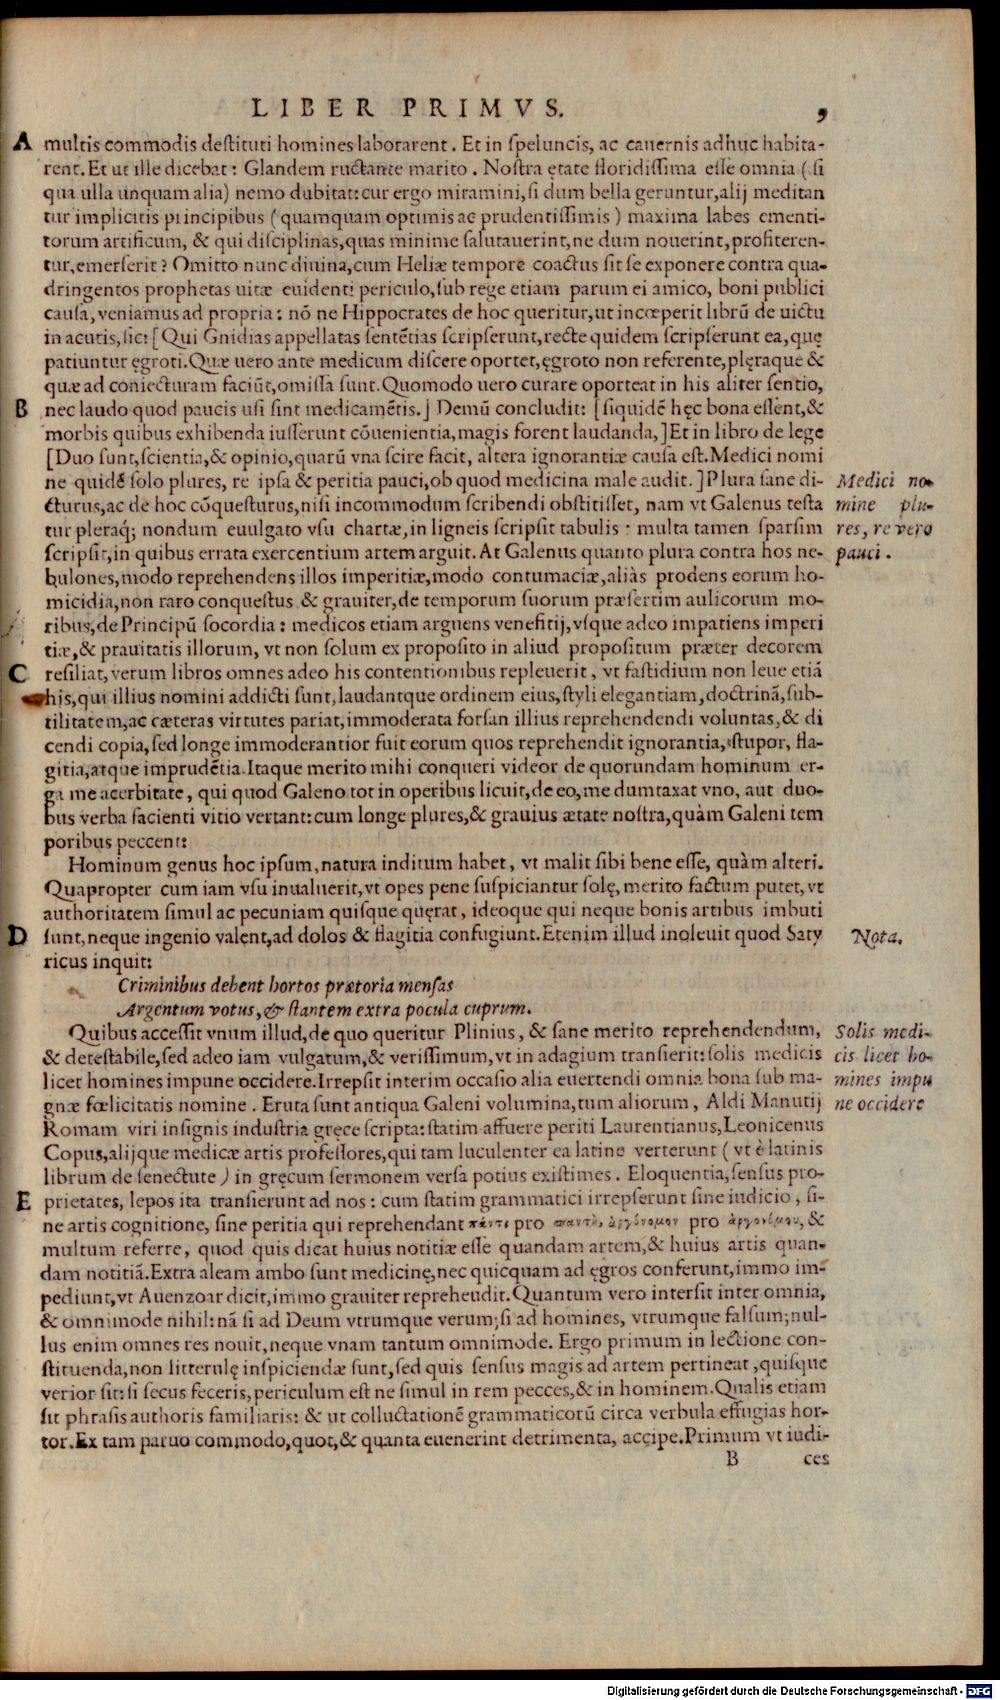 LIBER PRIMVS. 9
A multis commodis destituti homines laborarent. Et in speluncis, ac cauernis adhuc habita-
rent. Et ut ille dicebat: Glandem ructante marito. Nostra ętate floridissima esse omnia (si
qua ulla unquam alia) nemo dubitat: cur ergo miramini, si dum bella geruntur, alij meditan
tur implicitis principibus (quamquam optimis ac prudentissimis) maxima labes ementi-
torum artificum, & qui disciplinas, quas minime salutauerint, ne dum nouerint, profiteren-
tur, emerserit? Omitto nunc diuina, cum Heliæ tempore coactus sit se exponere contra qua-
dringentos prophetas uitæ euidenti periculo, sub rege etiam parum ei amico, boni publici
causa, veniamus ad propria: nō ne Hippocrates de hoc queritur, ut incœperit librū de uictu
in acutis, sic: [Qui Gnidias appellatas sentētias scripserunt, recte quidem scripserunt ea, quę
patiuntur ęgroti. Quæ uero ante medicum discere oportet, ęgroto non referente, plęraque &
quæ ad coniecturam faciūt, omissa sunt. Quomodo uero curare oporteat in his aliter sentio,
B nec laudo quod paucis usi sint medicamētis.] Demū concludit: [siquidē hęc bona essent, &
morbis quibus exhibenda iusserunt cōuenientia, magis forent laudanda,] Et in libro de lege
[Duo sunt, scientia, & opinio, quarū vna scire facit, altera ignorantiæ causa est. Medici nomi
ne quidē solo plures, re ipsa & peritia pauci, ob quod medicina male audit.] Plura sane di-
cturus, ac de hoc cōquesturus, nisi incommodum scribendi obstitisset, nam vt Galenus testa
tur pleraq; nondum euulgato vsu chartæ, in ligneis scripsit tabulis: multa tamen sparsim
scripsit, in quibus errata exercentium artem arguit. At Galenus quanto plura contra hos ne-
bulones, modo reprehendens illos imperitiæ, modo contumaciæ, aliàs prodens eorum ho-
micidia, non raro conquestus & grauiter, de temporum suorum præsertim aulicorum mo-
ribus, de Principū socordia: medicos etiam arguens venefitij, vsque adeo impatiens imperi
tiæ, & prauitatis illorum, vt non solum ex proposito in aliud propositum præter decorem
C resiliat, verum libros omnes adeo his contentionibus repleuerit, vt fastidium non leue etiā
his, qui illius nomini addicti sunt, laudantque ordinem eius, styli elegantiam, doctrinā, sub-
tilitatem, ac cæteras virtutes pariat, immoderata forsan illius reprehendendi voluntas, & di
cendi copia, sed longe immoderantior fuit eorum quos reprehendit ignorantia, stupor, fla-
gitia, atque imprudētia. Itaque merito mihi conqueri videor de quorundam hominum er-
ga me acerbitate, qui quod Galeno tot in operibus licuit, de eo, me dumtaxat vno, aut duo-
bus verba facienti vitio vertant: cum longe plures, & grauius ætate nostra, quàm Galeni tem
poribus peccent:
Hominum genus hoc ipsum, natura inditum habet, vt malit sibi bene esse, quàm alteri.
Quapropter cum iam vsu inualuerit, vt opes pene suspiciantur solę, merito factum putet, vt
authoritatem simul ac pecuniam quisque quęrat, ideoque qui neque bonis artibus imbuti
D sunt, neque ingenio valent, ad dolos & flagitia confugiunt. Etenim illud inoleuit quod Saty
ricus inquit:
Criminibus debent hortos prætoria mensas
Argentum votus, & stantem extra pocula cuprum.
Quibus accessit vnum illud, de quo queritur Plinius, & sane merito reprehendendum,
& detestabile, sed adeo iam vulgatum, & verissimum, vt in adagium transierit: solis medicis
licet homines impune occidere. Irrepsit interim occasio alia euertendi omnia bona sub ma-
gnæ fœlicitatis nomine. Eruta sunt antiqua Galeni volumina, tum aliorum, Aldi Manutij
Romam viri insignis industria gręce scripta: statim affuere periti Laurentianus, Leonicenus
Copus, alijque medicæ artis professores, qui tam luculenter ea latine verterunt (vt è latinis
librum de senectute) in gręcum sermonem versa potius existimes. Eloquentia, sensus pro-
E prietates, lepos ita transierunt ad nos: cum statim grammatici irrepserunt sine iudicio, si-
ne artis cognitione, sine peritia qui reprehendant πάντι pro παντὶ, ἀργόνομον pro ἀργονόμου, &
multum referre, quod quis dicat huius notitiæ esse quandam artem, & huius artis quan-
dam notitiā. Extra aleam ambo sunt medicinę, nec quicquam ad ęgros conferunt, immo im-
pediunt, vt Auenzoar dicit, immo grauiter repreheudit. Quantum vero intersit inter omnia,
& omnimode nihil: nā si ad Deum vtrumque verum; si ad homines, vtrumque falsum; nul-
lus enim omnes res nouit, neque vnam tantum omnimode. Ergo primum in lectione con-
stituenda, non litterulę inspiciendæ sunt, sed quis sensus magis ad artem pertineat, quisque
verior sit: si secus feceris, periculum est ne simul in rem pecces, & in hominem. Qualis etiam
sit phrasis authoris familiaris: & ut colluctationē grammaticorū circa verbula effugias hor-
tor. Ex tam paruo commodo, quot, & quanta euenerint detrimenta, accipe. Primum vt iudi-
B ces
Medici no-
mine plu-
res, re vero
pauci.
Nota.
Solis medi-
cis licet ho-
mines impu
ne occidere
Digitalisierung gefördert durch die Deutsche Forschungsgemeinschaft - DFG